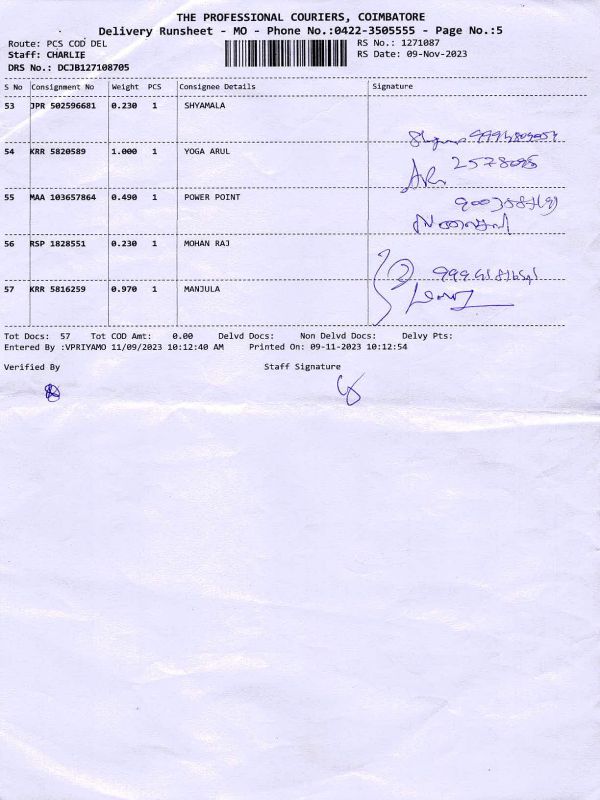 THE PROFESSIONAL COURIERS, COIMBATORE
Delivery Runsheet - MO - Phone No.:0422-3505555 - Page No.:5
Route: PCS COD DEL RS No.: 1271087
Staff: CHARLIE RS Date: 09-Nov-2023
DRS No.: DCJB127108705
S No Consignment No Weight PCS Consignee Details Signature
53 JPR 502596681 0.230 1 SHYAMALA
54 KRR 5820589 1.000 1 YOGA ARUL
55 MAA 103657864 0.490 1 POWER POINT
56 RSP 1828551 0.230 1 MOHAN RAJ
57 KRR 5816259 0.970 1 MANJULA
Tot Docs: 57 Tot COD Amt: 0.00 Delvd Docs: Non Delvd Docs: Delvy Pts:
Entered By :VPRIYAMO 11/09/2023 10:12:40 AM Printed On: 09-11-2023 10:12:54
Verified By Staff Signature